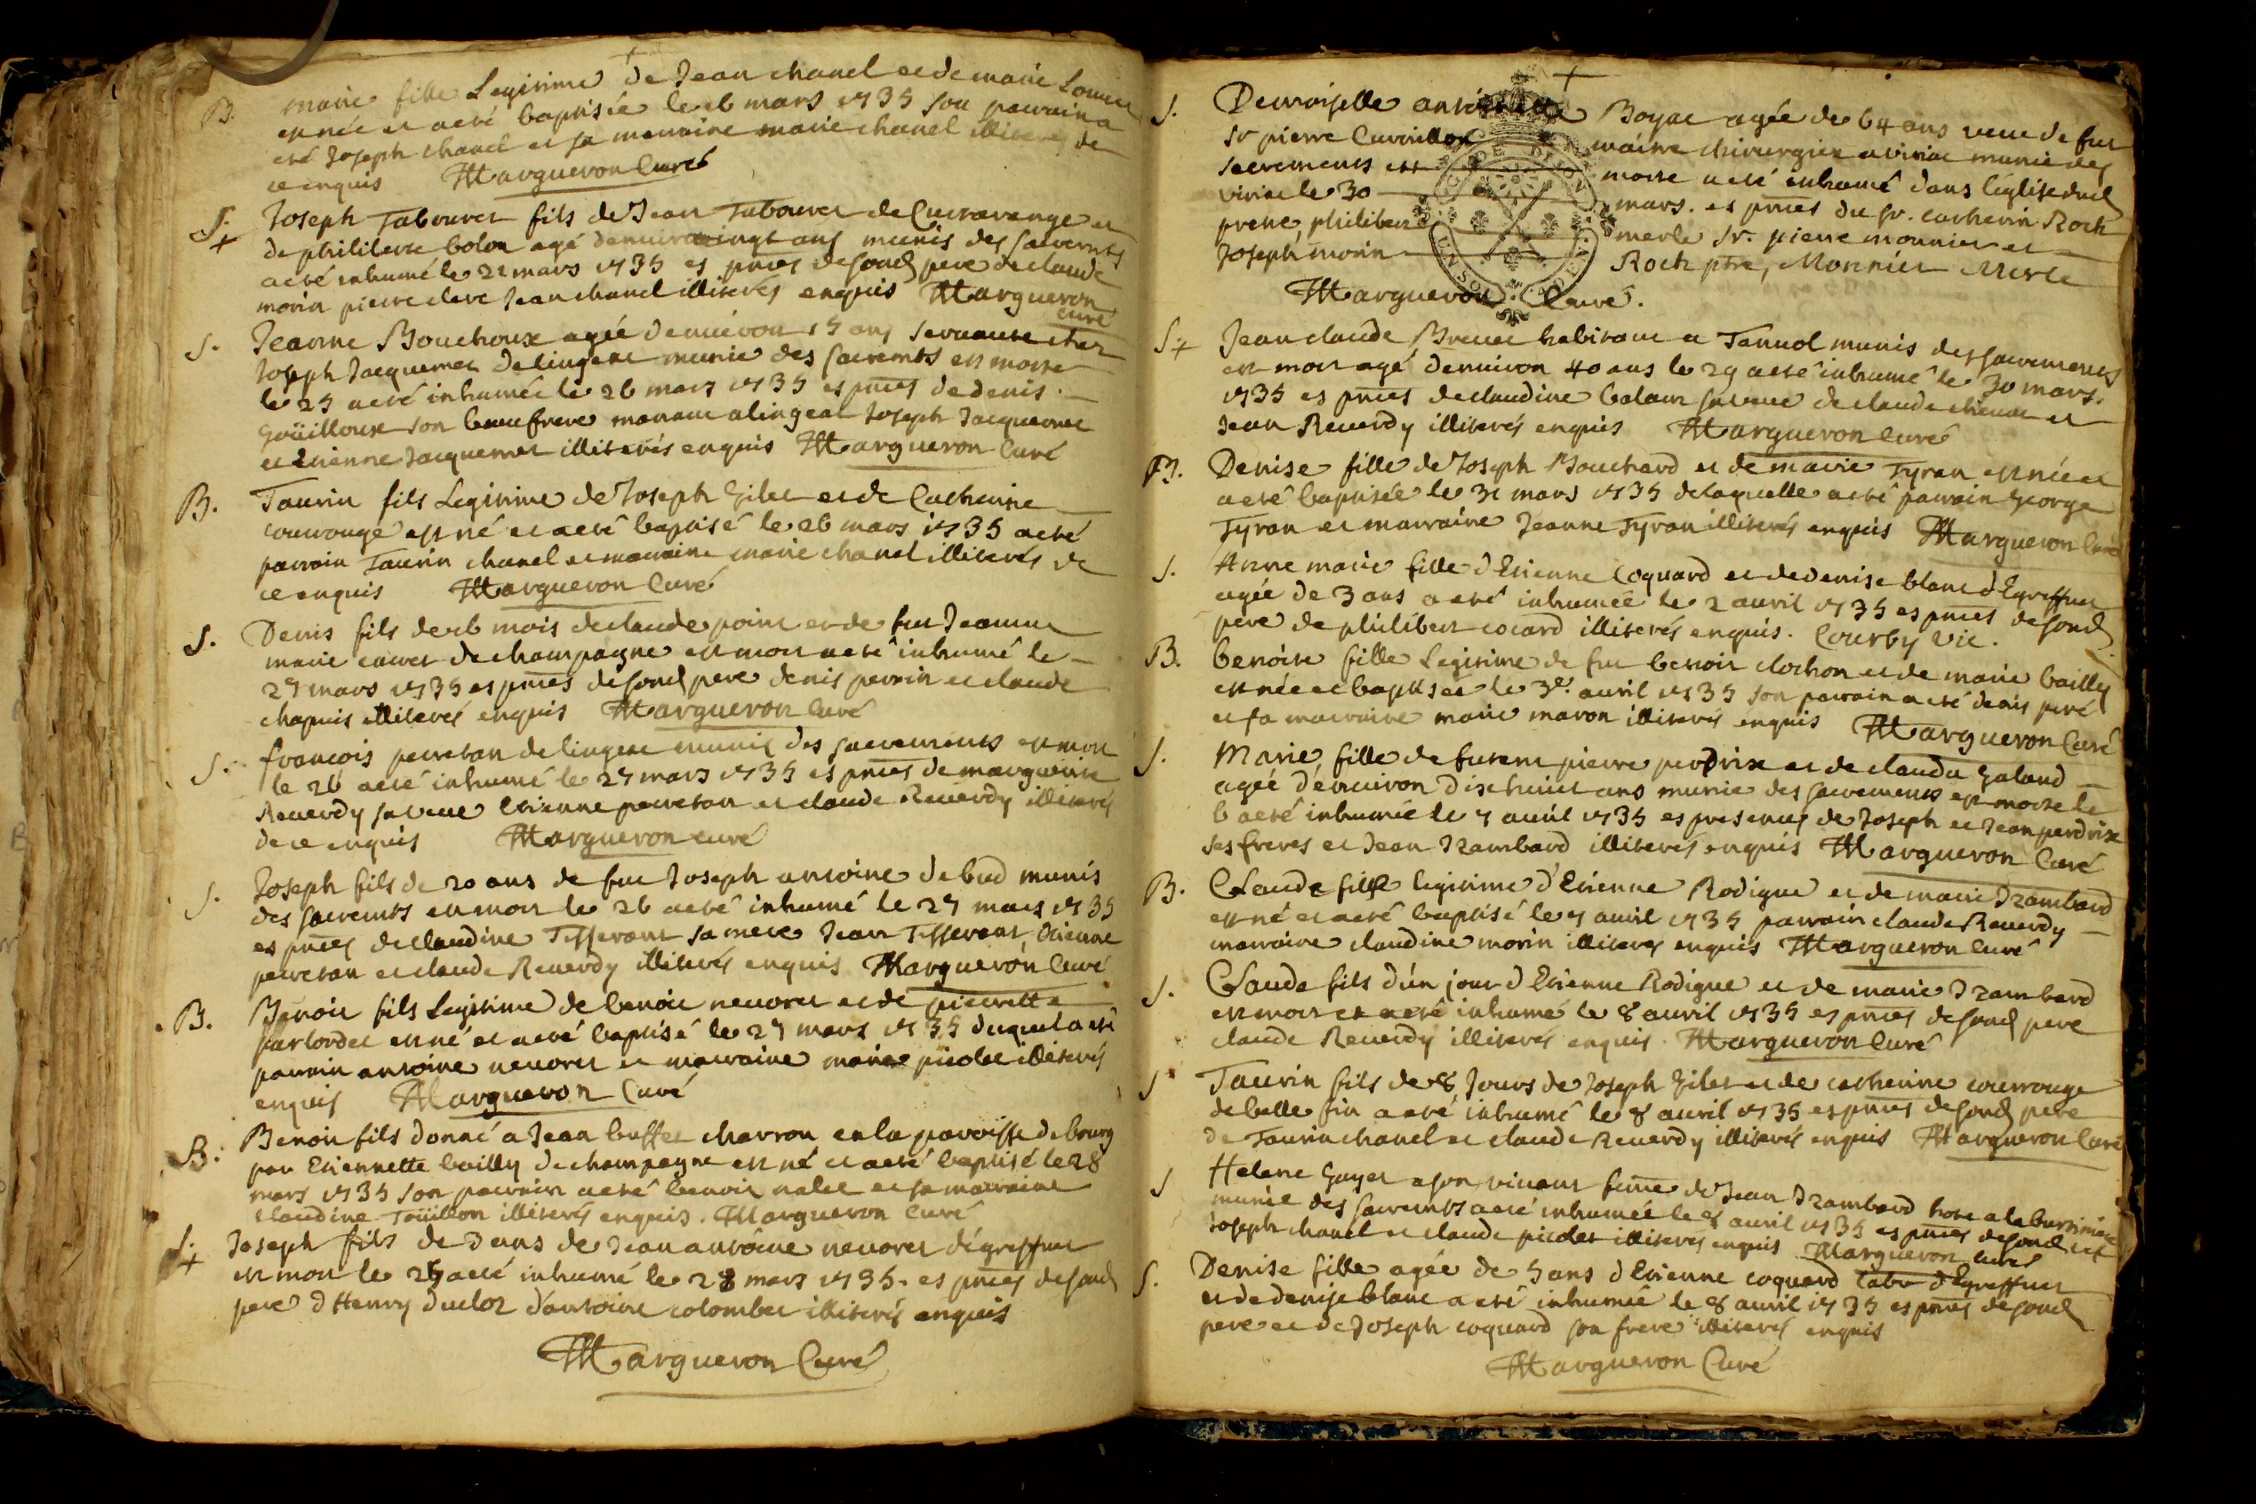 B. marie fille Legitime de Jean chanel et de marie
est née et a eté baptisée le 26 mars 1735 son parrain a
eté Joseph chanel et sa marraine marie chanel illiterés de
ce enquis Margueron Curé
S. Joseph Tabouret fils de Jean Tabouret de Cuirarange et
de philiberte bolon agé denviron vingt ans munis des sacremts
a eté inhumé le 22 mars 1735 es pnces desond pere de claude
morin pierre clerc Jean chanel illiterés enquis Margueron
curé
S. Jeanne Bouchoux agée denviron 15 ans servante chez
Joseph Jacquemet de lingeat munie des sacremts est morte
le 25 a eté inhumée le 26 mars 1735 es pnces de denis
Goüilloux son beaufrere manant a lingeat Joseph Jacquemet
et Etienne Jacquemet illiterés enquis Margueron Curé
B. Taurin fils Legitime de Joseph Gilet et de Catherine
courrouge est né et a eté baptisé le 26 mars 1735 a eté
parrain Taurin chanel et marraine marie chanel illiterés de
ce enquis Margueron Curé
S. Denis fils de 16 mois de claude point et de fut Jeanne
marie cauret de champagne est mort a eté inhumé le
27 mars 1735 es pnces desond pere denis perrin et claude
chapuis illiterés enquis Margueron Curé
S. francois perretan de lingeat munis des sacrements est mort
le 26 a eté inhumé le 27 mars 1735 es pnces de marguerite
Reverdy sa veue Etienne perretan et claude Reverdy illiterés
de ce enquis Margueron curé
S. Joseph fils de 20 ans de fut Joseph antoine de bud munis
des sacremts est mort le 26 a eté inhumé le 27 mars 1735
es pnces de claudine Tisserant sa mere Jean Tisserant, Etienne
perretan et claude Reverdy illiterés enquis Margueron Curé
B. Benoit fils Legitime de benoit nevoret et de pierrette
parlordet est né et a eté baptisé le 27 mars 1735 duquel a eté
parrain antoine nevoret et marraine marie picolet illiterés
enquis Margueron Curé
B. Benoit fils donné a Jean buffet charron en la paroisse de bourg
par Etiennette bailly de champagne est né et a eté baptisé le 28
mars 1735 son parrain a eté benoit nalet et sa marraine
claudine Toüillon illiterés enquis. Margueron Curé
S. Joseph fils de 3 ans de Jean antoine nevoret degreffiat
est mort le 27 a eté inhumé le 28 mars 1735. es pnces desond
pere d'Henry duclos d'antoine colombet illiterés enquis
Margueron Curé
S. Demoiselle Boyat agée de 64 ans veue de fut
Sr pierre Curvillon maitre chirurgien a viriat munie des
sacrements est morte a eté inhumé dans léglise dud
viriat le 30 mars. es pnces du sr. catherin Roch
pretre, philibert merle sr. pierre monnier et
Joseph morin Roch ptre, Monnier Merle
Margueron Curé.
S. Jean claude Brevet habitant a Tanvol munis des sacrements
est mort agé denviron 40 ans le 29 a eté inhumé le 30 mars.
1735 es pnces de claudine balant sa veue de claude chevat et
Jean Reverdy illiterés enquis Margueron Curé
B. Denise fille de Joseph Bouchard et de marie Tyran est née et
a eté baptisée le 31 mars 1735 de laquelle a eté parrain George
Tyran et marraine Jeanne Tyran illiterés enquis Margueron Curé
S. Anne marie fille d'Etienne Coquard et de denise blanc d'Egreffiat
agée de 3 ans a eté inhumée le 2 avril 1735 es pnces desond
pere de philibert cocard illiterés enquis. Courby vic.
B. benoite fille Legitime de fut benoit clochon et de marie bailly
est née et baptisée le 3e. avril 1735 son parrain a eté denis peré
et sa marraine marie maron illiterés enquis Margueron Curé
S. Marie, fille de furent pierre perdrix et de clauda Galand
agée d'environ dixhuit ans munie des sacrements est morte le
6 a eté inhumée le 7 avril 1735 es presences de Joseph et Jean perdrix
ses freres et Jean Drambard illiterés enquis Margueron Curé
B. Claude fils legitime d'Etienne Rodigue et de marie Drambard
est né et a eté baptisé le 7 avril 1735 parrain claude Reverdy
marraine claudine morin illiterés enquis Margueron Curé
S. Claude fils d'un jour d'Etienne Rodigue et de marie Drambard
est mort et a eté inhumé le 8 avril 1735 es pnces desond pere
claude Reverdy illiterés enquis. Margueron Curé
S Taurin fils de 8 Jours de Joseph Gilet et de catherine courrouge
de belle fin a eté inhumé le 8 avril 1735 es pnces desond pere
de Taurin chanel et claude Reverdy illiterés enquis Margueron Curé
S Helene Guyet a son vivant feme de Jean Drambard hote a la
munie des sacremts a eté inhumée le 8 avril 1735 es pnces desond
Joseph chanel et claude picolet illiterés enquis Margueron curé
S. Denise fille agée de 5 ans d'Etienne coquard d'Egreffiat
et de denise blanc a eté inhumée le 8 avril 1735 es pnces desond
pere et de Joseph coquard son frere illiterés enquis
Margueron Curé